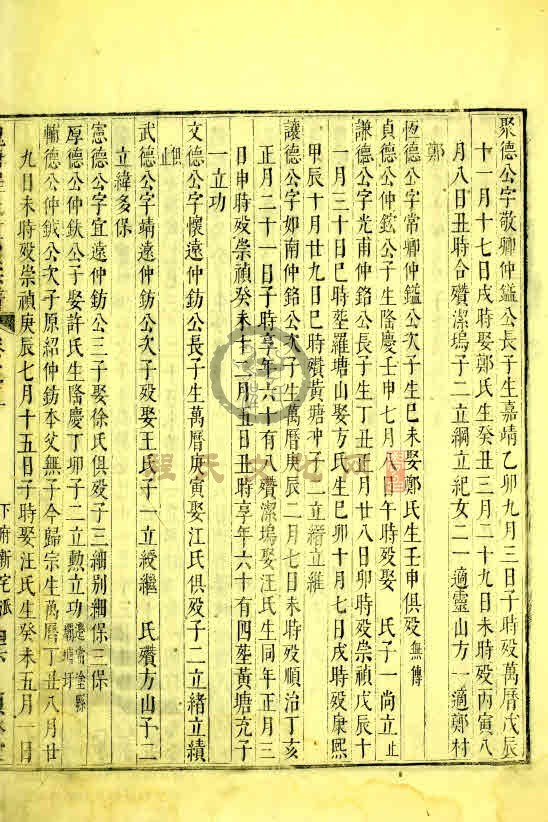 聚德公字敬卿仲鎰公長子生嘉靖乙卯九月三日子時殁萬曆戊辰
十一月十七日戌時娶鄭氏生癸丑三月二十九日未時殁丙寅八
月八日丑時合殯潔塢子二立綱立紀女二一適靈山方一適鄭村
鄭
恆德公字常卿仲鎰公次子生巳未娶鄭氏生壬申俱殁 無傳
貞德公仲鉞公子生隆慶壬申七月八日午時殁娶 氏子一尚立 止
謙德公字光甫仲鉻公長子生丁丑正月廿八日卯時殁崇禎戊辰十
一月三十日巳時塟羅塘山娶方氏生巳卯十月七日戌時殁康熙
甲辰十月廿九日巳時殯黃塘冲子二立縉立維
讓德公字如南仲鉻公次子生萬曆庚辰二月七日未時殁順治丁亥
正月二十一日子時享年六十有八殯潔塢娶汪氏生同年正月三
日申時殁崇禎癸未十二月五日丑時享年六十有四塟黃塘充子
一立功
文德公字懷遠仲鈁公長子生萬曆庚寅娶江氏俱殁子二立緒立績
俱止
武德公字靖遠仲鈁公次子殁娶王氏子一立綬繼 氏殯方山子二
立緯多保
憲德公字宜遠仲鈁公三子娶徐氏俱殁子三細别細保三保
厚德公仲鈇公子娶許氏生隆慶丁卯子二立勲立功
輔德公仲鉞公次子原紹仲鈁本父無子今歸宗生萬曆丁丑八月廿
九日未時殁崇禎庚辰七月十五日子時娶汪氏生癸未五月一日
下府新宅派